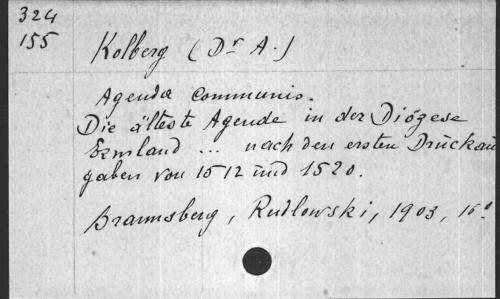 324
155
Kolberg (Dr A.)
Agenda communis.
Die älteste Agende in der Diözese
Ermland ... nach den ersten Druckau
gaben von 1512 und 1520.
Braunsberg, Rudlowski, 1903, 16º